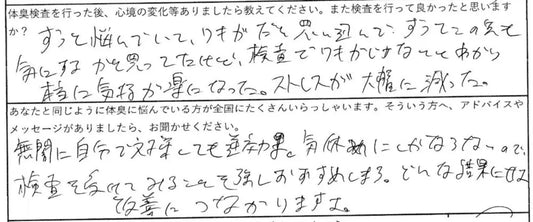 体臭検査を行った後、心境の変化等ありましたら教えてください。また検査を行って良かったと思います
か？ ずっと悩んでいて、ワキガだと思い込んで、ずっとこの先も
気にするかと思ってたけど、検査でワキガじゃないとわかり
本当に気持が楽になった。ストレスが大幅に減った。
あなたと同じように体臭に悩んでいる方が全国にたくさんいらっしゃいます。そういう方へ、アドバイスや
メッセージがありましたら、お聞かせください。
無闇に自分で対策しても逆効果。気休めにしかならないので、
検査を受けてみることを強くおすすめします。どんな結果にせよ
改善につながりますよ。